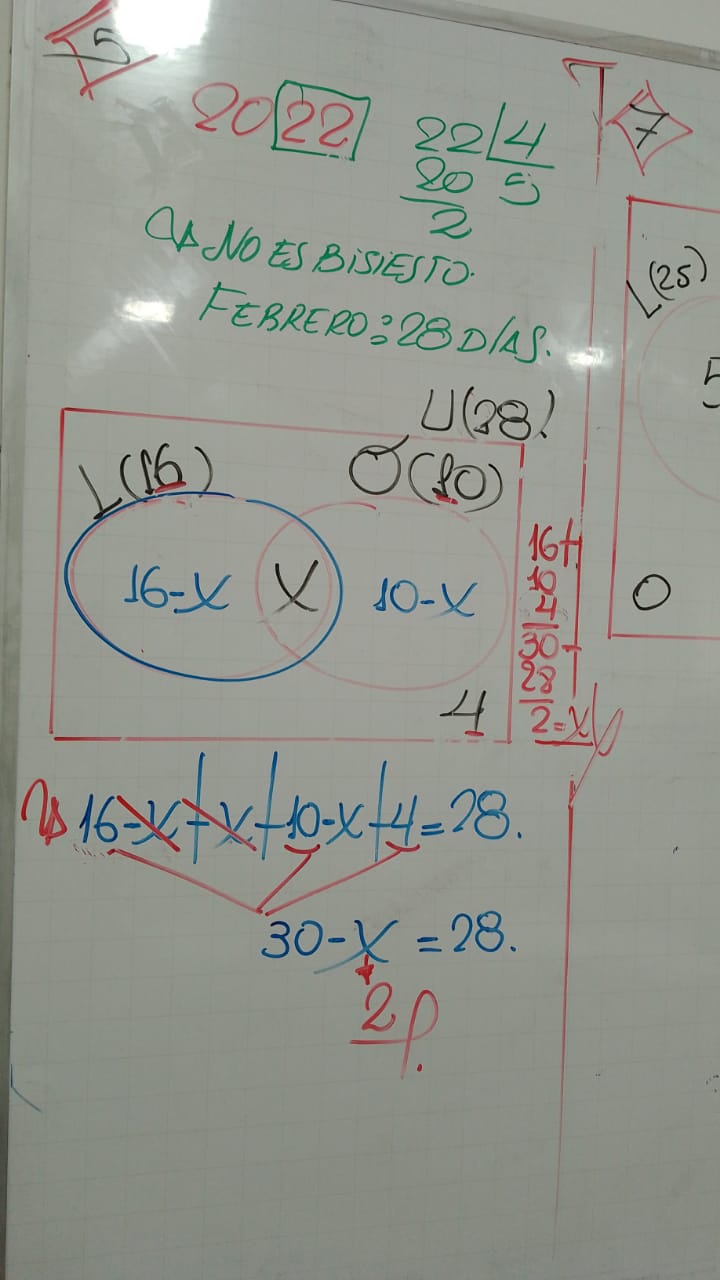 5
2022
22 4
20 5
2
NO ES BISIESTO.
FEBRERO: 28 DÍAS.
U(28)
L(16) O(10)
16-X X 10-X
4
16+
10
4
30-
28
2=X
16-X+X+10-X+4=28.
30-X=28.
2
7
L(25)
5
0